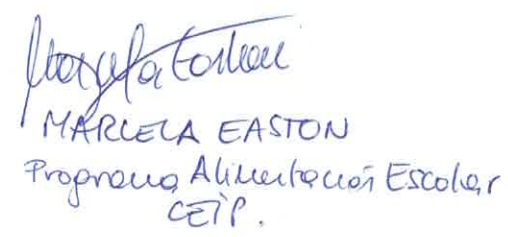 Marcela Easton
MARCELA EASTON
Programa Alimentación Escolar
CEIP.